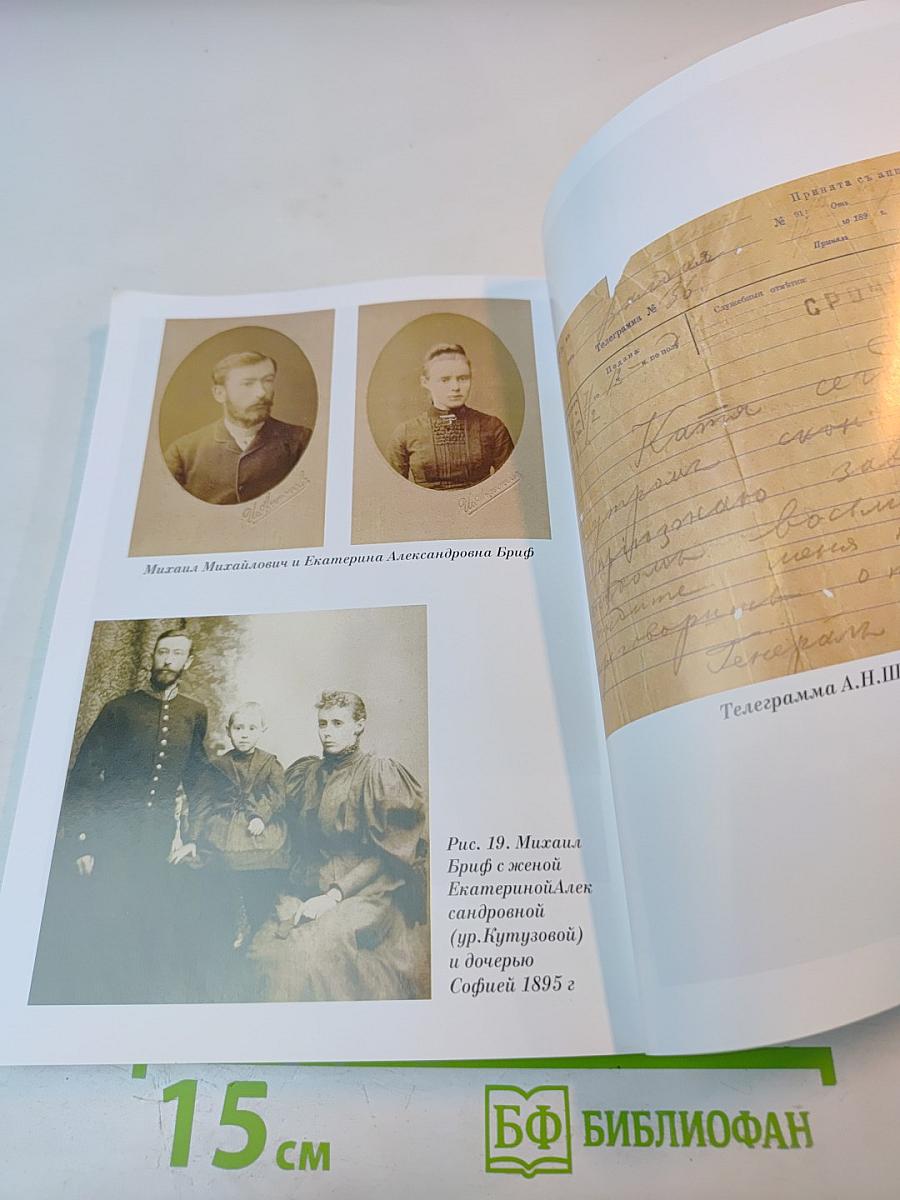 Михаил Михайлович и Екатерина Александровна Бриф
Рис. 19. Михаил
Бриф с женой
ЕкатеринойАлек
сандровной
(ур.Кутузовой)
и дочерью
Софией 1895 г
Принята съ апп
№ 91
Отъ
го 189 г.
Принялъ
Телеграмма № 56.
Служебныя отмѣтки:
СРОЧ
Подана
по полу
Катя сег
утромъ скон
восьми
меня
Генералъ
Телеграмма А.Н.Ш
15 см
БФ БИБЛИОФАН